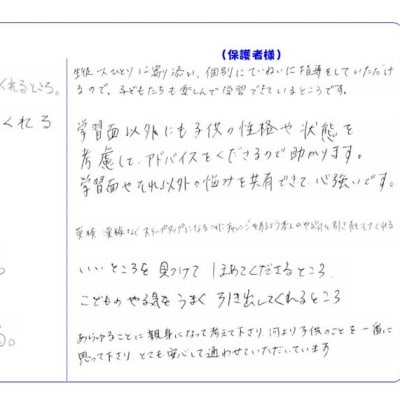 (保護者様)
くれるところ。
くれる
る。
生徒一人ひとりに寄り添い、個別にていねいに指導をしていただけ
るので、子どもたちも楽しんで学習できているところです。
学習面以外にも子供の性格や状態を
考慮して、アドバイスをくださるので助かります。
学習面やそれ以外の悩みを共有できて、心強いです。
英検 漢検など ステップアップになる
引き出してくれる
いいところを見つけて ほめてくださるところ
こどものやる気をうまく引き出してくれるところ
あらゆることに親身になって考えて下さり、何より子供のことを一番に
思って下さり、とても安心して通わせていただいています